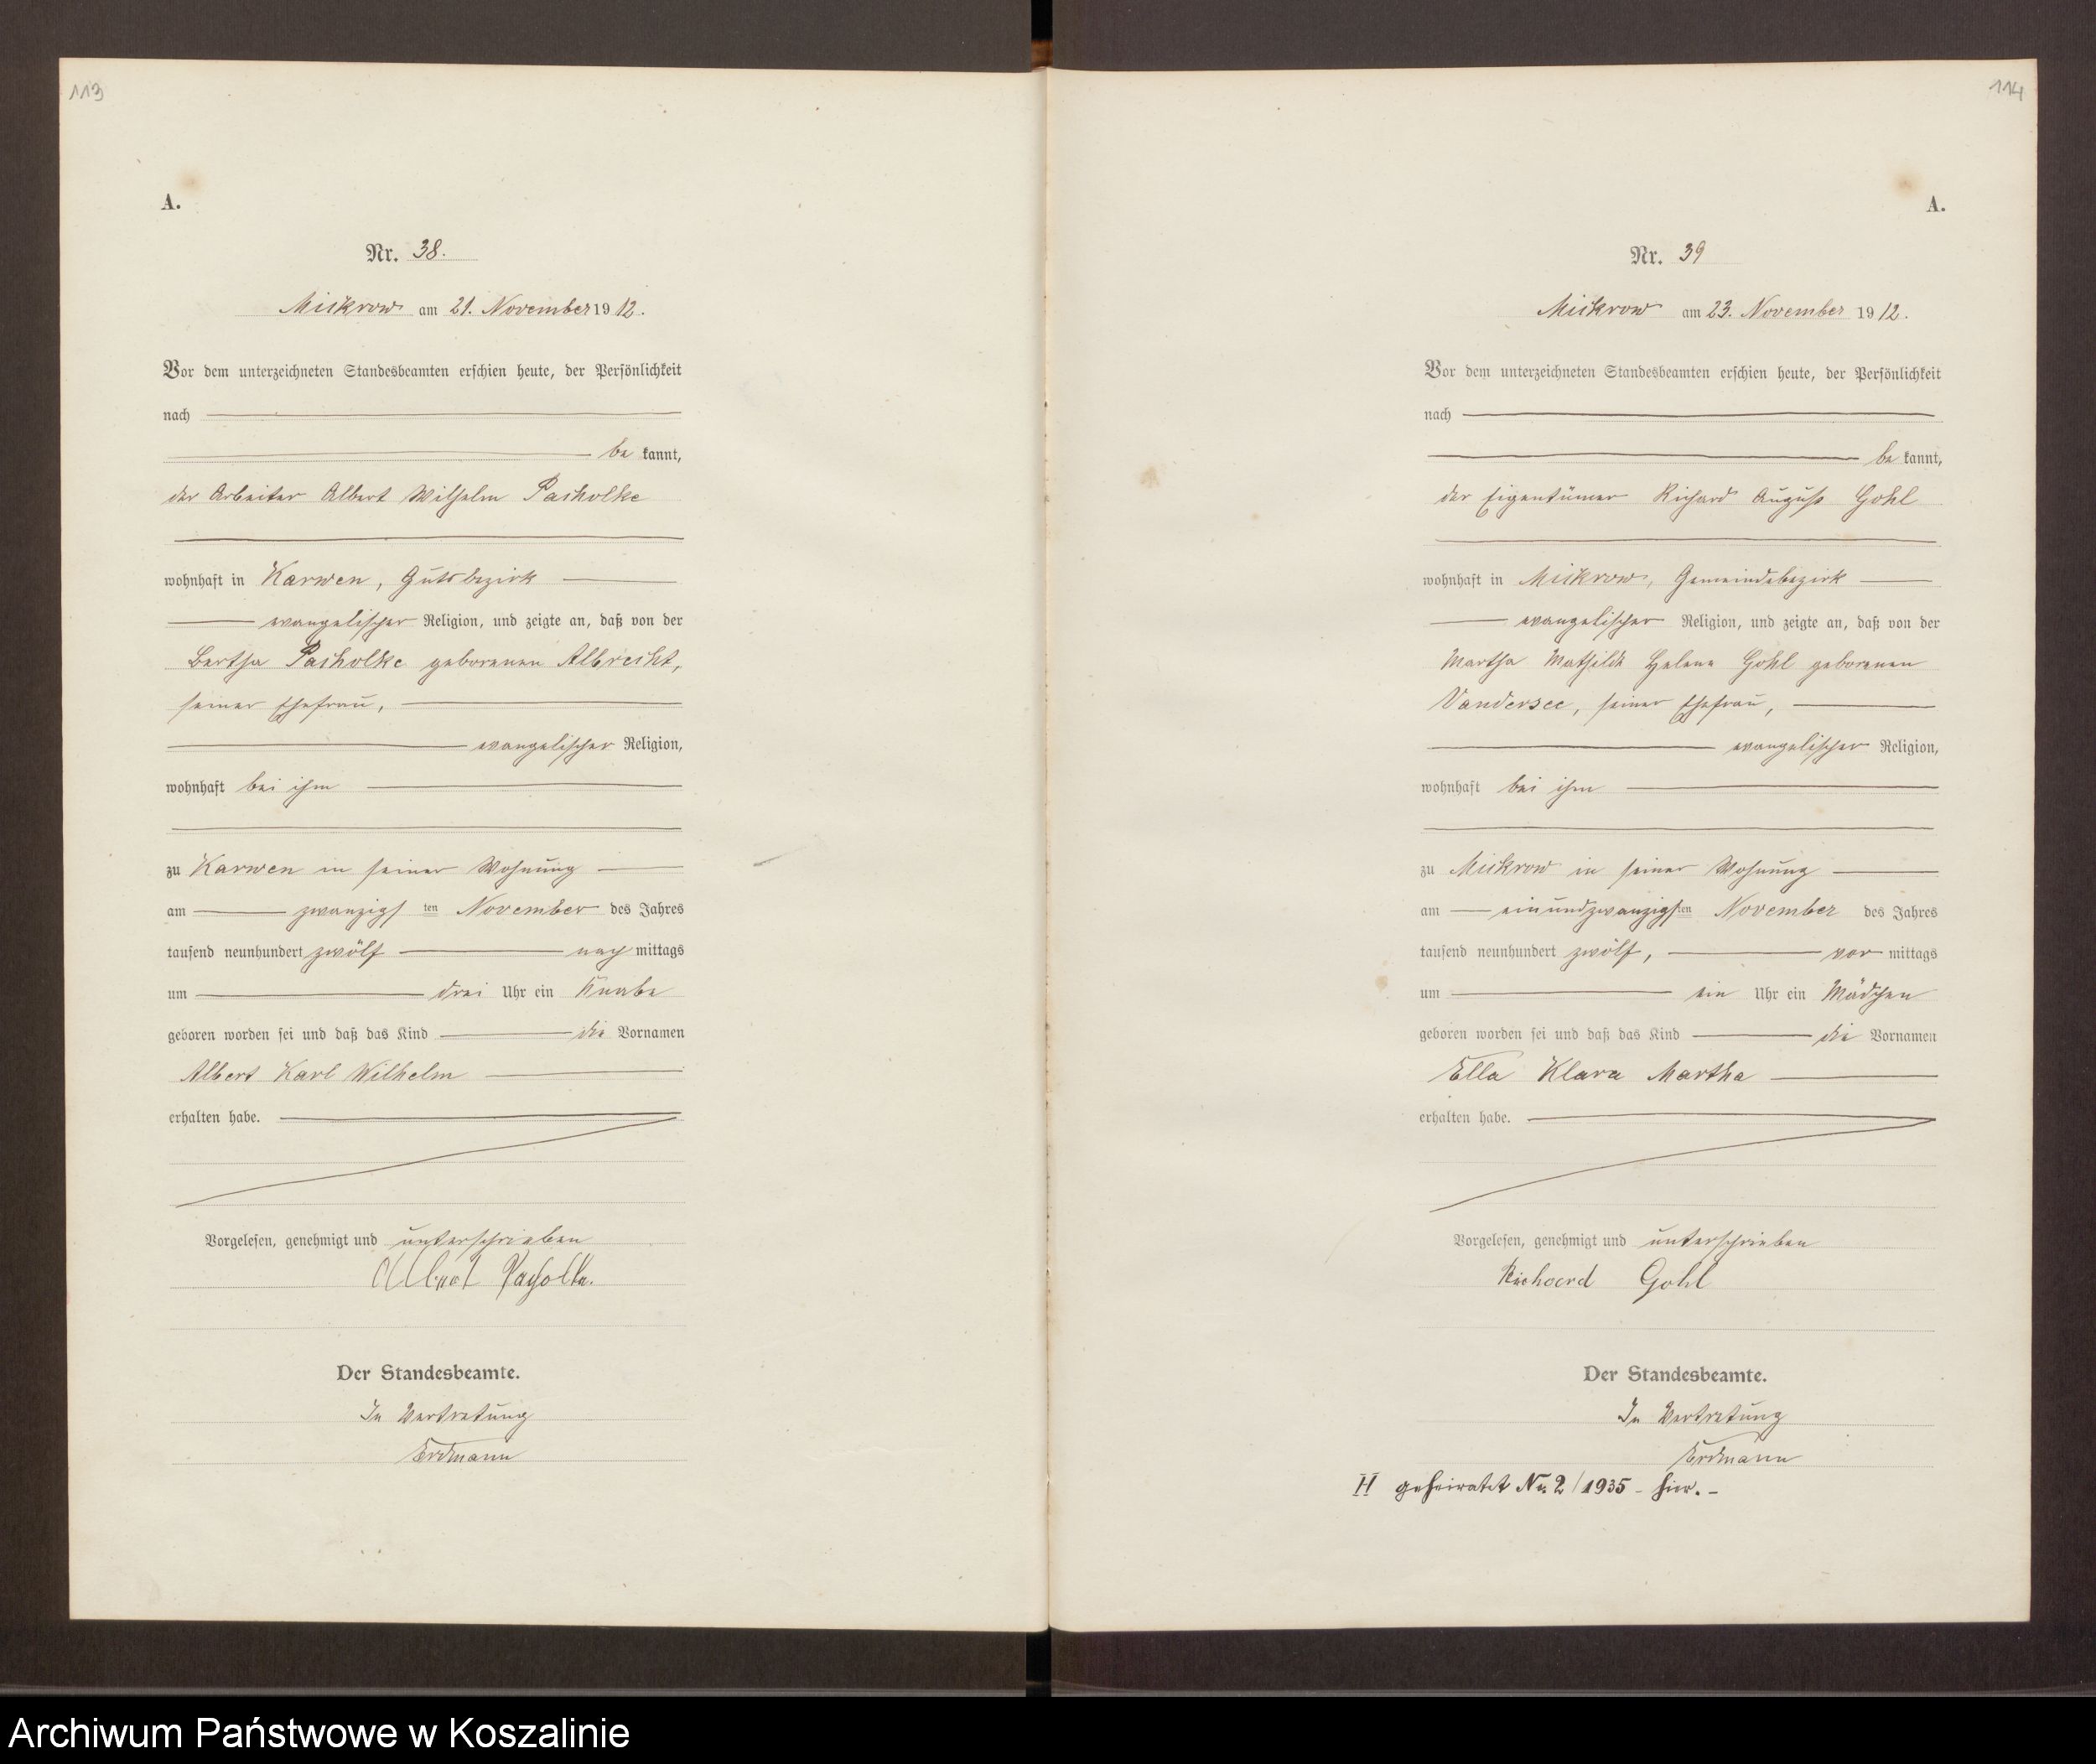 113
A.
Nr. 38.
Mickrow am 21. November 1912.
Vor dem unterzeichneten Standesbeamten erschien heute, der Persönlichkeit
nach
be kannt,
der Arbeiter Albert Wilhelm Pacholke
wohnhaft in Karwen, Gutsbezirk
evangelischer Religion, und zeigte an, daß von der
Bertha Pacholke geborenen Albrecht,
seiner Ehefrau,
evangelischer Religion,
wohnhaft bei ihm
zu Karwen in seiner Wohnung
am zwanzigsten November des Jahres
tausend neunhundert zwölf nachmittags
um drei Uhr ein Knabe
geboren worden sei und daß das Kind die Vornamen
Albert Karl Wilhelm
erhalten habe.
Vorgelesen, genehmigt und unterschrieben
Albert Pacholke.
Der Standesbeamte.
In Vertretung
Erdmann
114
A.
Nr. 39
Mickrow am 23. November 1912.
Vor dem unterzeichneten Standesbeamten erschien heute, der Persönlichkeit
nach
be kannt,
der Eigentümer Richard August Gohl
wohnhaft in Mickrow, Gemeindebezirk
evangelischer Religion, und zeigte an, daß von der
Martha Mathilde Helene Gohl geborenen
Vandersee, seiner Ehefrau,
evangelischer Religion,
wohnhaft bei ihm
zu Mickrow in seiner Wohnung
am einundzwanzigsten November des Jahres
tausend neunhundert zwölf, vormittags
um ein Uhr ein Mädchen
geboren worden sei und daß das Kind die Vornamen
Ella Klara Martha
erhalten habe.
Vorgelesen, genehmigt und unterschrieben
Richard Gohl
Der Standesbeamte.
In Vertretung
Erdmann
H geheiratet Nr. 2/1935 - hier. -
Archiwum Państwowe w Koszalinie